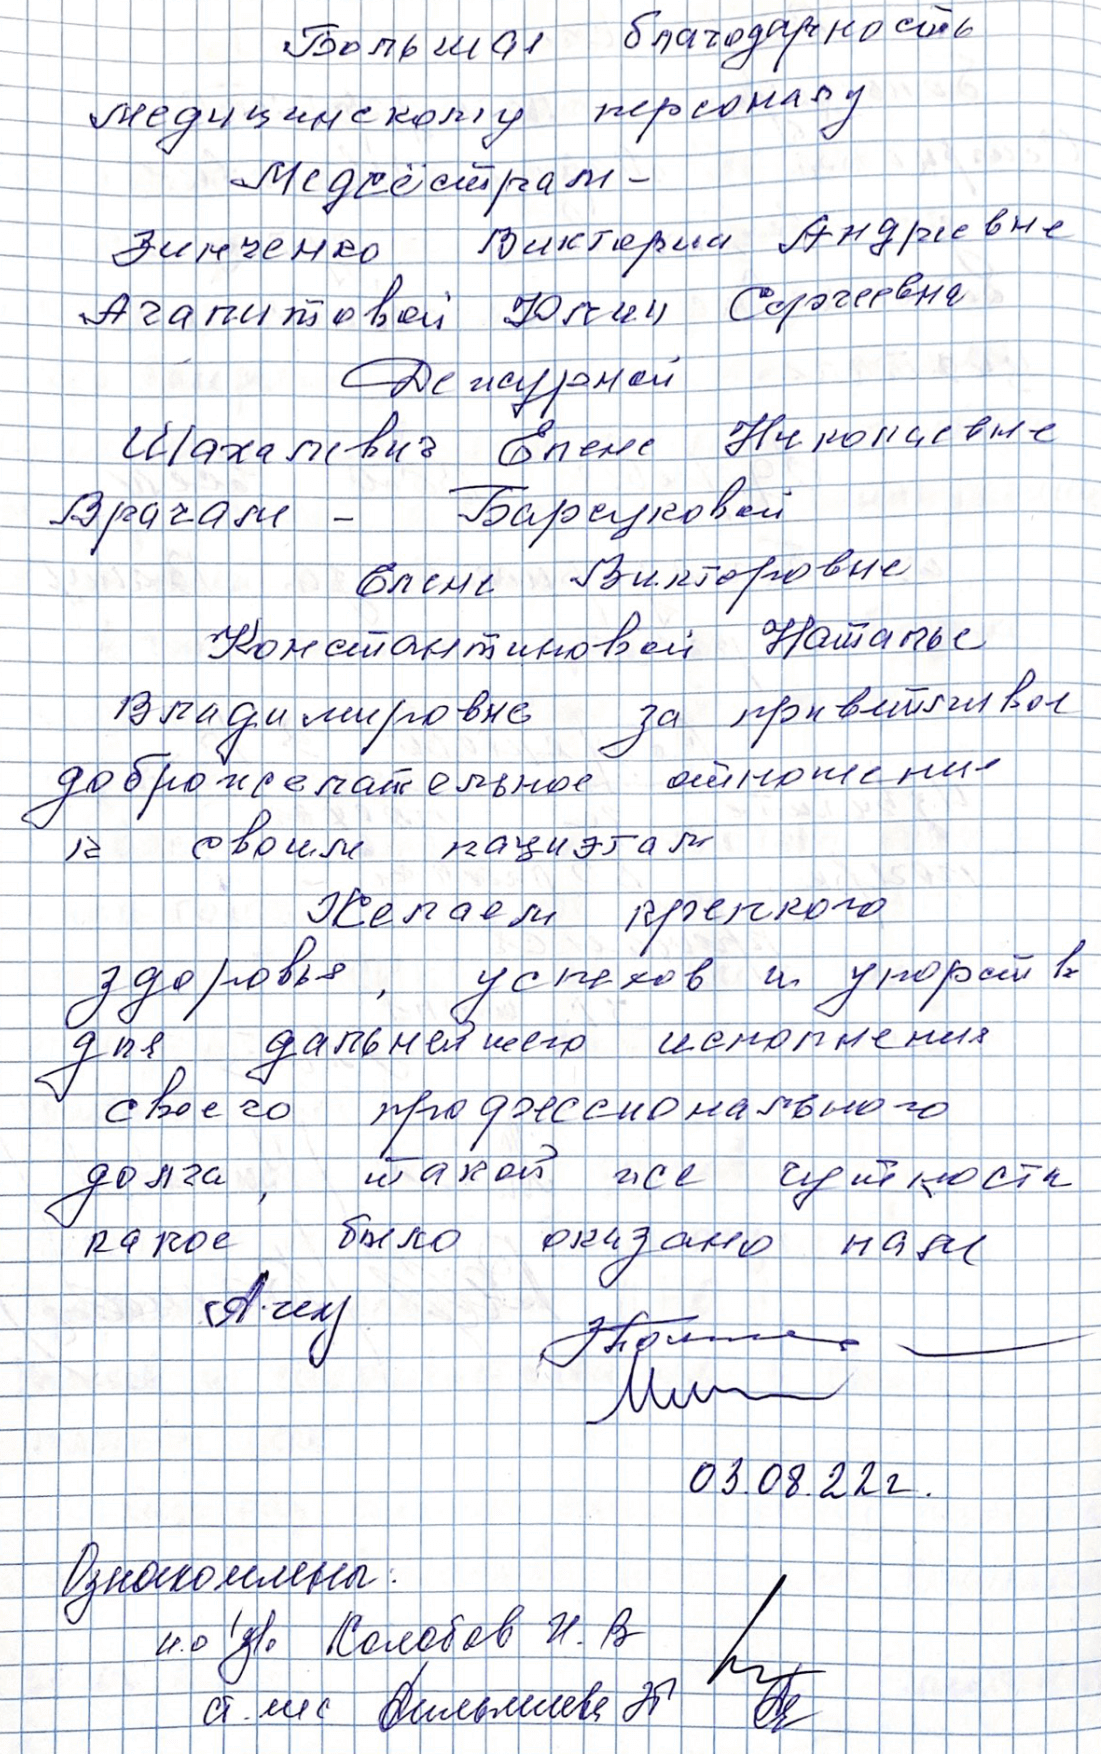 Большая благодарность
медицинскому персоналу
Медсёстрам -
Зинченко Виктории Андриевне
Агапитовой Юлии Сергеевна
Дежурной
Шахалевич Елене Николаевне
Врачам - Барсуковой
Елене Викторовне
Константиновой Наталье
Владимировне за приветливое
доброжелательное отношение
к своим пациэтам
Желаем крепкого
здоровья, успехов и упорств
для дальнейшего исполнения
своего професионального
долга, такой же чуткости
какое было оказано нам
03.08.22г.
Ознакомлены:
Колобов Н. В
ст. мс